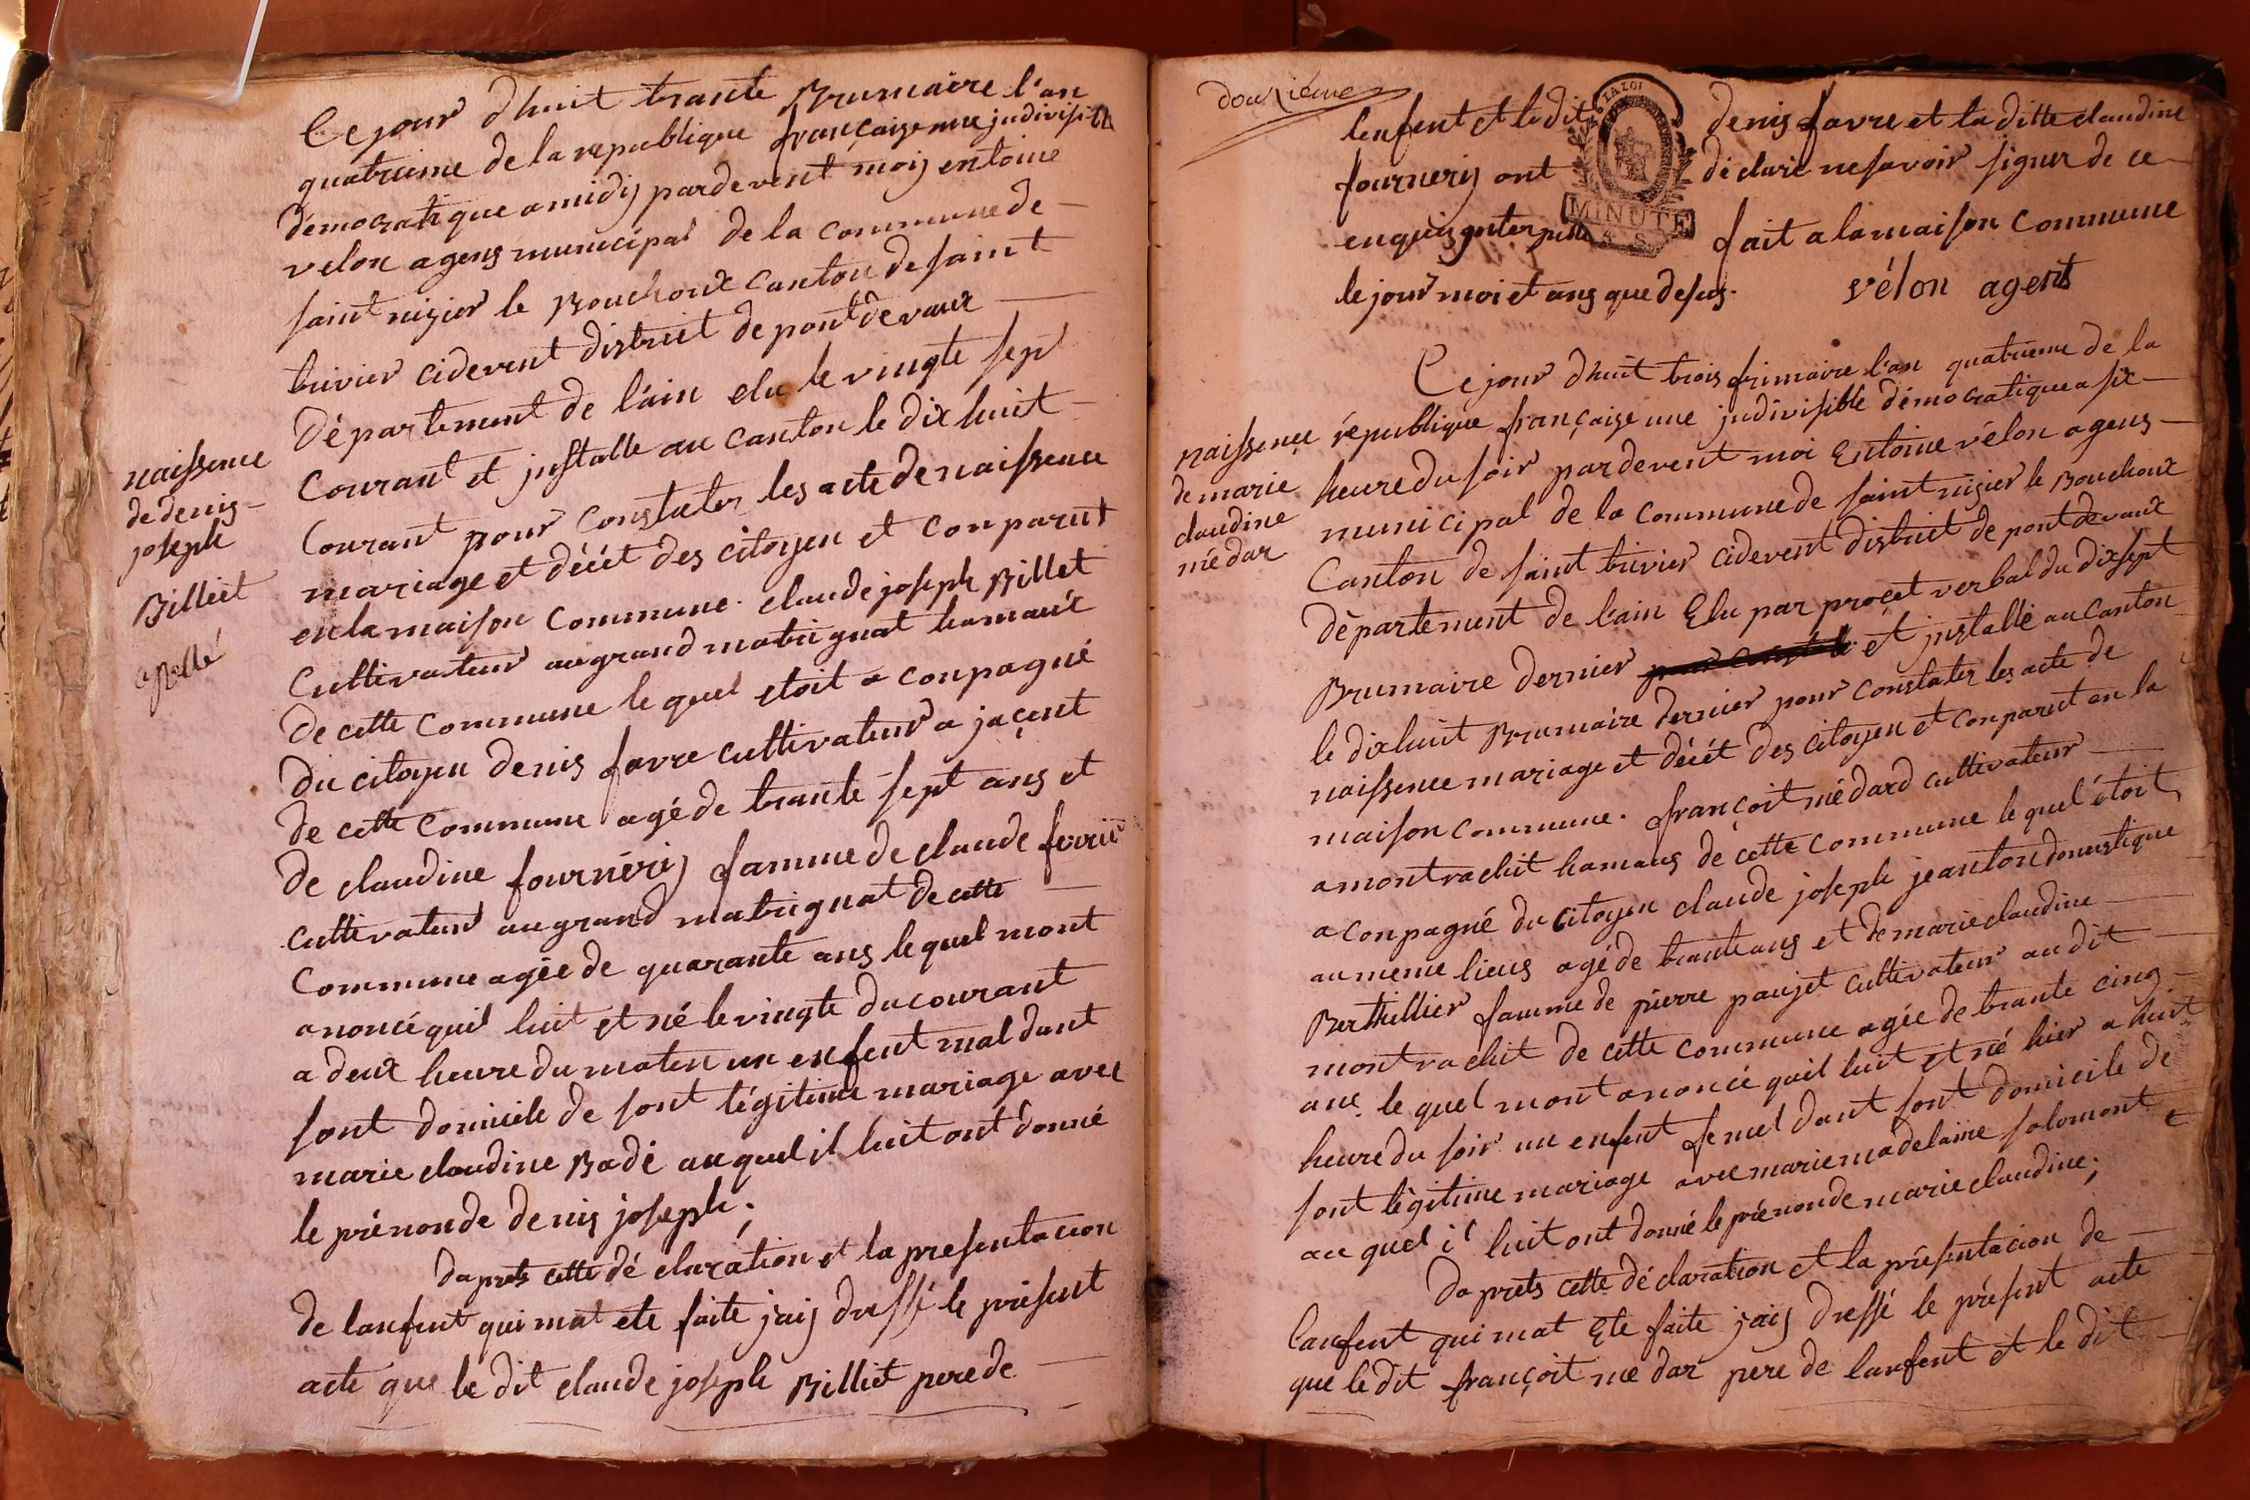 Ce jour dhuit trante Brumaire l'an
quatrieme de la republique françaize une jndivisible
démocratique a midij pardevent moij entoine
velon agens municipal de la commune de
saint nizier le Bouchoux canton de saint
trivier cidevent district de pontdevaux
département de l'ain elu le vingte sept
courant et jnstallé au canton le dix huit
courant pour constater les acte de naissence
mariage et décét des citoyen et conparut
en la maison commune. claude joseph Billet
cultivateur au grand matrignat hamaux
de cette commune le quel etoit a conpagné
du citoyen denis favre cultivateur a jaçent
de cette commune agé de trante sept ans et
de claudine fournérij famme de claude ferrié
cultivateur au grand matrignat de cette
commune agée de quarante ans le quel mont
anoncé quil luit et né le vingte du courant
a deux heure du maten un enfent mal dant
sont domicile de sont légitime mariage avec
marie claudine Badé au quel il luit ont donné
le prénon de denis joseph;
da prets cette dé claration et la presentacion
de lanfent qui mat ete faite jaij dressé le présent
acte que le dit claude joseph Billiet pere de
naissence
de denis
joseph
Billiet
apellé
douzième
lenfent et le dit denis favre et la ditte claudine
fournerij ont déclaré ne savoir signer de ce
enquis jnterpellé fait a la maison commune
le jour moi et ans que desus. vélon agent
LA LOI
MINUTE
Ce jour dhuit trois frimaire l'an quatrieme de la
république françaize une jndivisible démocratique a six
heure du soir pardevent moi Entoine vélon agens
municipal de la commune de saint nizier le Bouchoux
Canton de saint trivier cidevent district de pontdevaux
département de l'ain Elu par procet verbal du dixsept
Brumaire dernier et jnstallé au canton
le dixhuit Brumaire dernier pour constater les acte de
naissence mariage et décét des citoyen et conparut en la
maison commune. françoit médard cultivateur
a montrachit hamaus de cette commune le quel étoit
a conpagné du citoyen claude joseph jeanton domestique
au meme lieus agé de trante ans et de marie claudine
Berthillier famme de pierre paujet cultivateur au dit
montrachit de cette commune agée de trante cinq
ans. le quel mont anoncé quil luit et né hier a huit
heure du soir un enfent femel dant sont domicile de
sont légitime mariage avec marie madelaine solomont et
au quel il luit ont donné le prénon de marie claudine;
da prets cette dé claration et la présentacion de
lanfent qui mat Ete faite jaij dressé le présent acte
que le dit françoit me dar pere de lanfent et le dit
naissence
de marie
claudine
médar